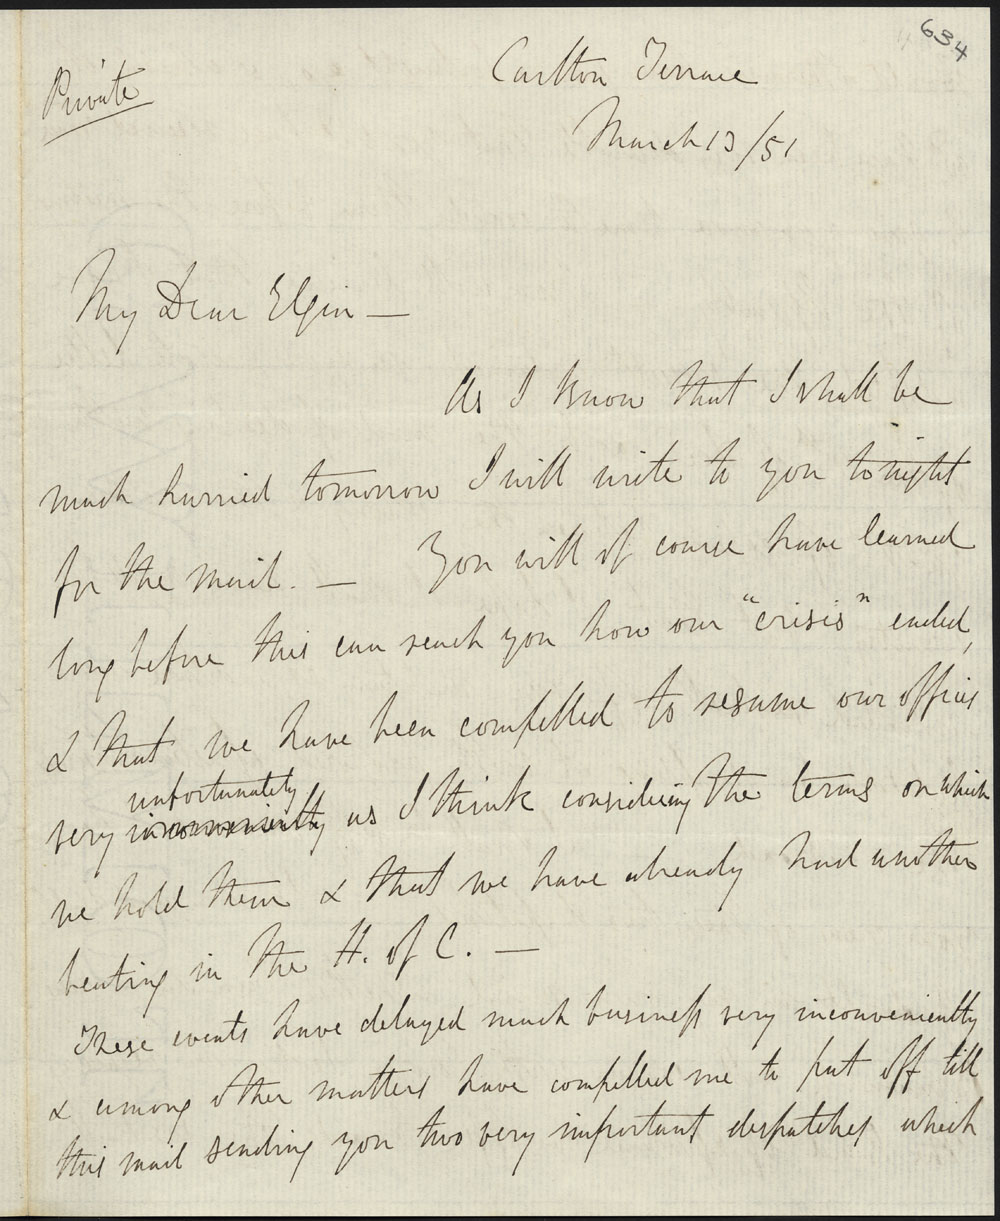 634
Private
Carlton Terrace
March 13/51
My Dear Elgin —
As I know that I shall be
much hurried tomorrow I will write to you tonight
for the mail. — You will of course have learned
long before this can reach you how our "crisis" ended,
& that we have been compelled to resume our offices
unfortunately
very inconveniently as I think considering the terms on which
we hold them & that we have already had another
beating in the H. of C. —
These events have delayed much business very inconveniently
& among other matters have compelled me to put off till
this mail sending you two very important despatches which